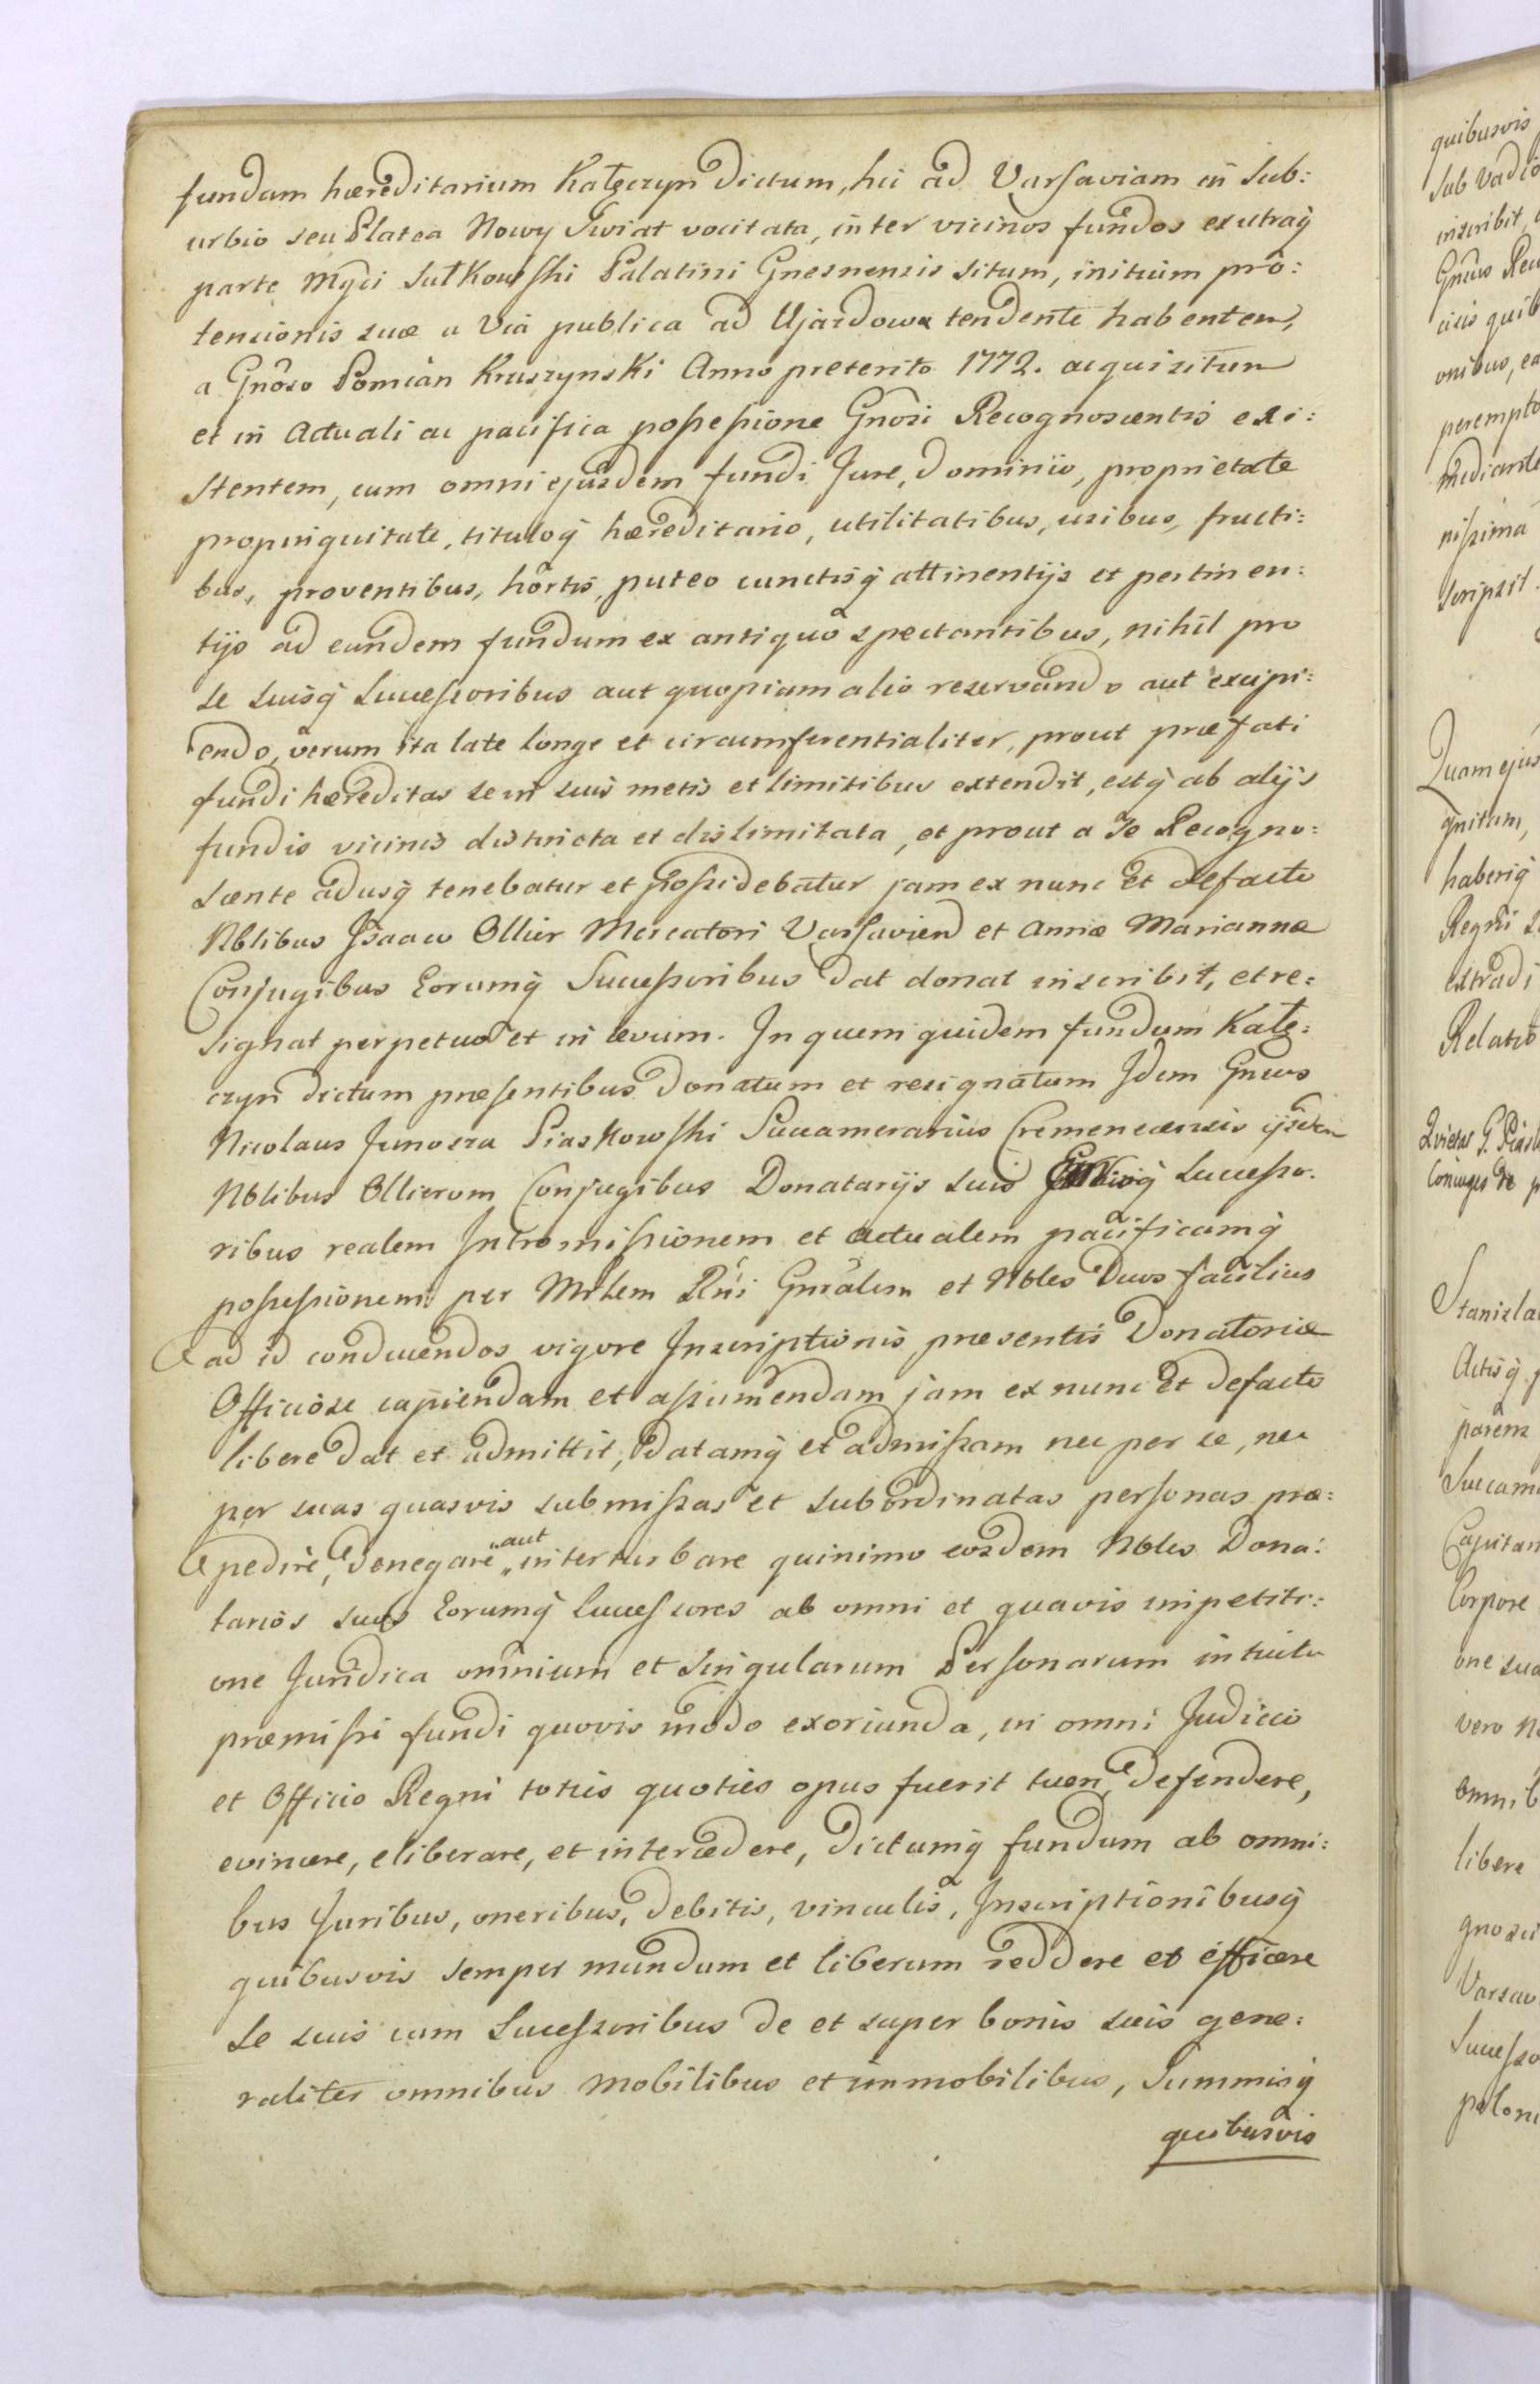 fundum hæreditarium Kałęczyn dictum, hic ad Varsaviam in sub:
urbio seu Platea Nowy Swiat vocitata, inter vicinos fundos ex utraq̃
parte Mgci Sułkowski Palatini Gnesnensis situm, initium pro:
tensionis suæ a Via publica ad Ujazdowa tendente habentem,
a Gnõso Pomian Kruszynski Anno preterito 1772. acquisitum
et in Actuali ac pacifica possessione Gnõsi Recognoscentis exi:
stentem, cum omni ejusdem fundi Jure, Dominio, proprietate
propinquitate, tituloq̃ hæreditario, utilitatibus, usibus, fructi:
bus, proventibus, hortis, puteo cunctisq̃ attinentijs et pertinen:
tijs ad eundem fundum ex antiquo spectantibus, nihil pro
se suisq̃ Successoribus aut quopiam alio reservando aut excipi:
endo, verum ita late longe et circumferentialiter, prout præfati
fundi hæreditas se in suis metis et limitibus extendit, estq̃ ab alijs
fundis vicinis districta et dislimitata, et prout a Se Recogno:
scente adusq̃ tenebatur et possidebatur jam ex nunc et defacto
Nblibus Jsaaco Ollier Mercatori Varsavien et Annæ Mariannæ
Conjugibus Eorumq̃ Successoribus dat donat inscribit, et re:
signat perpetuo et in ævum. In quem quidem fundum Kałę:
czyn dictum præsentibus donatum et resignatum Jdem Gnsus
Nicolaus Junosza Piaskowski Succamerarius Cremenecensis ijsdem
Nblibus Ollierom Conjugibus Donatarijs suis q̃ Successo:
ribus realem Intromissionem et actualem pacificamq̃
possessionem per Mrlem Rñi Gnralem et Nbles Duos facilius
ad id conducendos vigore Inscriptionis præsentis Donatoriæ
Officiose capiendam et assumendam jam ex nunc et defacto
libere dat et admittit, datamq̃ et admissam nec per se, nec
per suas quasvis submissas et subordinatas personas præ:
pedire, denegare „aut„ inturbare quinimo eosdem Nbles Dona:
tarios suos Eorumq̃ Successores ab omni et quavis impetiti:
one Juridica omnium et singularum Personarum intuitu
præmissi fundi quovis modo exoriunda, in omni Judicio
et Officio Regni toties quoties opus fuerit tueri, defendere,
evincere, eliberare, et intercedere, dictumq̃ fundum ab omni:
bus Juribus, oneribus, debitis, vinculis, Inscriptionibusq̃
quibusvis semper mundum et liberum reddere et efficere
se suis cum Successoribus de et super bonis suis gene:
raliter omnibus mobilibus et immobilibus, summisq̃
quibusvis
quibusvis
sub vadio
inscribit,
mediante
nissima
scripsit.
Quam ejus
gnitum,
haberiq̃
Regni
extradi
Relatio
Stanisla
Actisq̃
Corpore
one sua
vero
omnib
libere
gnosci
Varsav
Successo